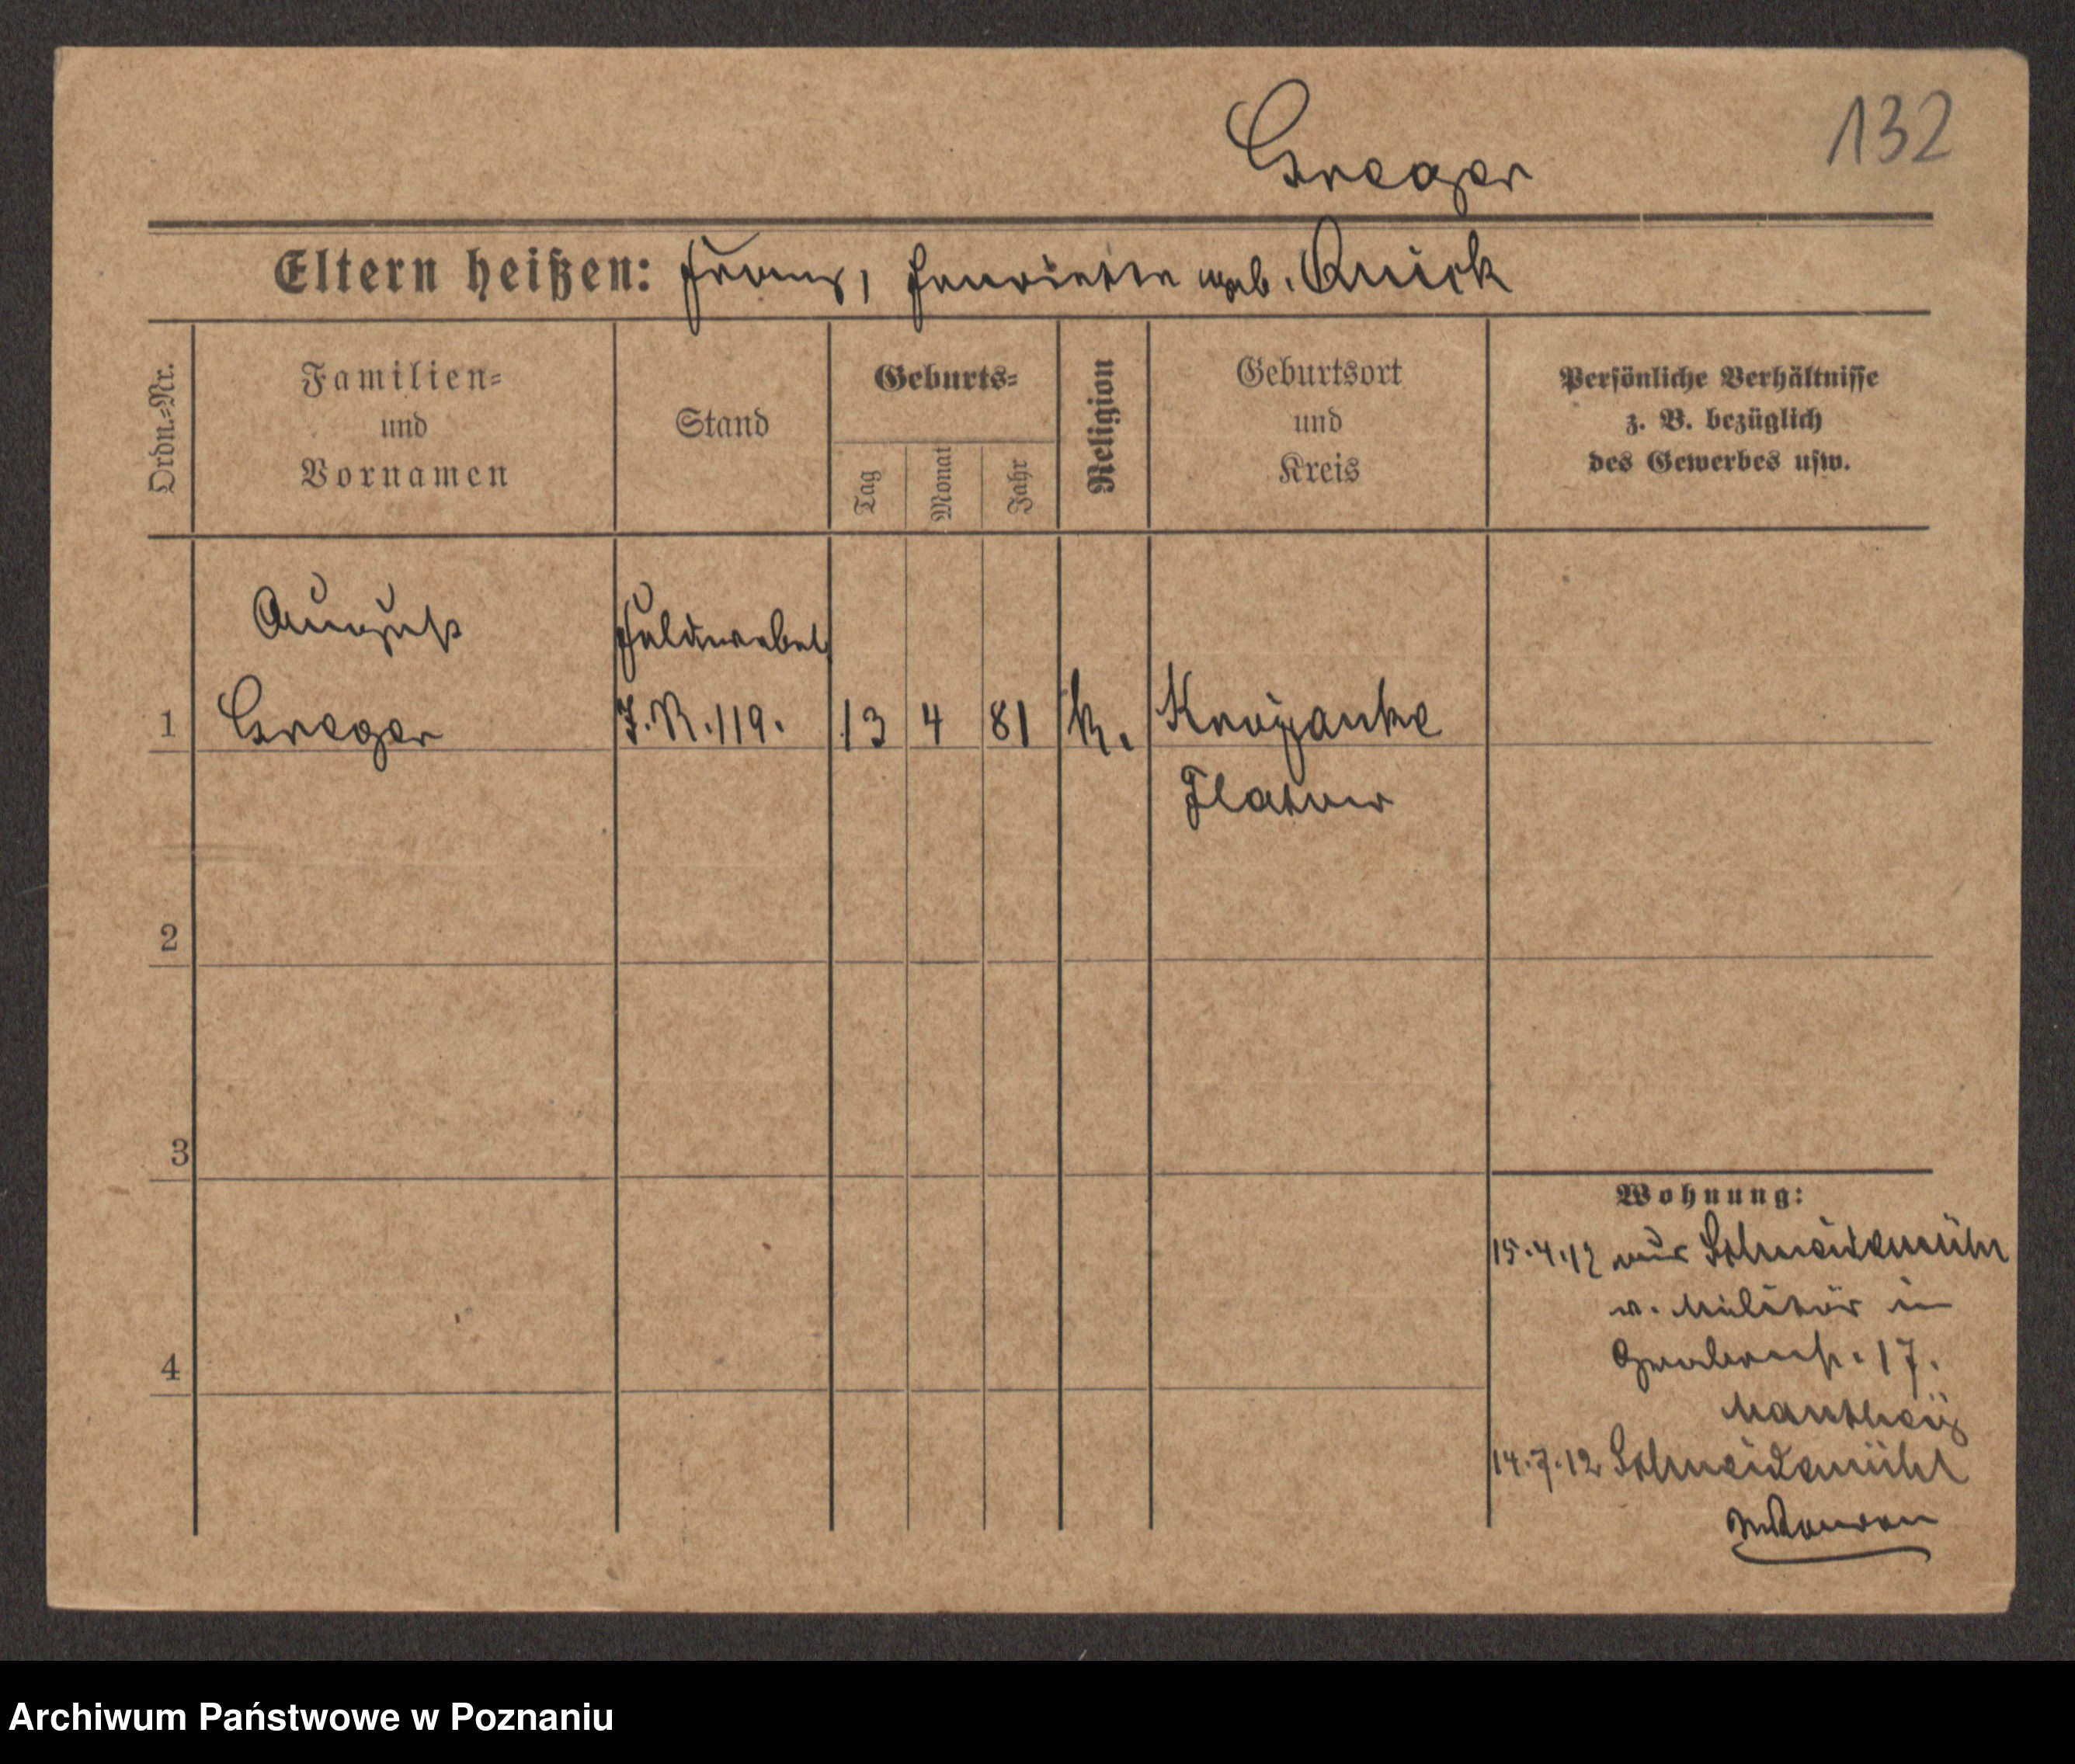 Greger
132
Eltern heißen: Franz, Henriette geb. Quick
Ordn.-Nr.
Familien-
und
Vornamen
Stand
Geburts-
Tag
Monat
Jahr
Religion
Geburtsort
und
Kreis
Persönliche Verhältnisse
z. B. bezüglich
des Gewerbes usw.
August
Feldwebel
1 Greger J. R. 119. 13 4 81 k. Krojanke
Flatow
2
3
4
Wohnung:
15.4.12 aus Schneidemühl
v. Militär in
17.
Manthey
14.7.12 Schneidemühl
Archiwum Państwowe w Poznaniu